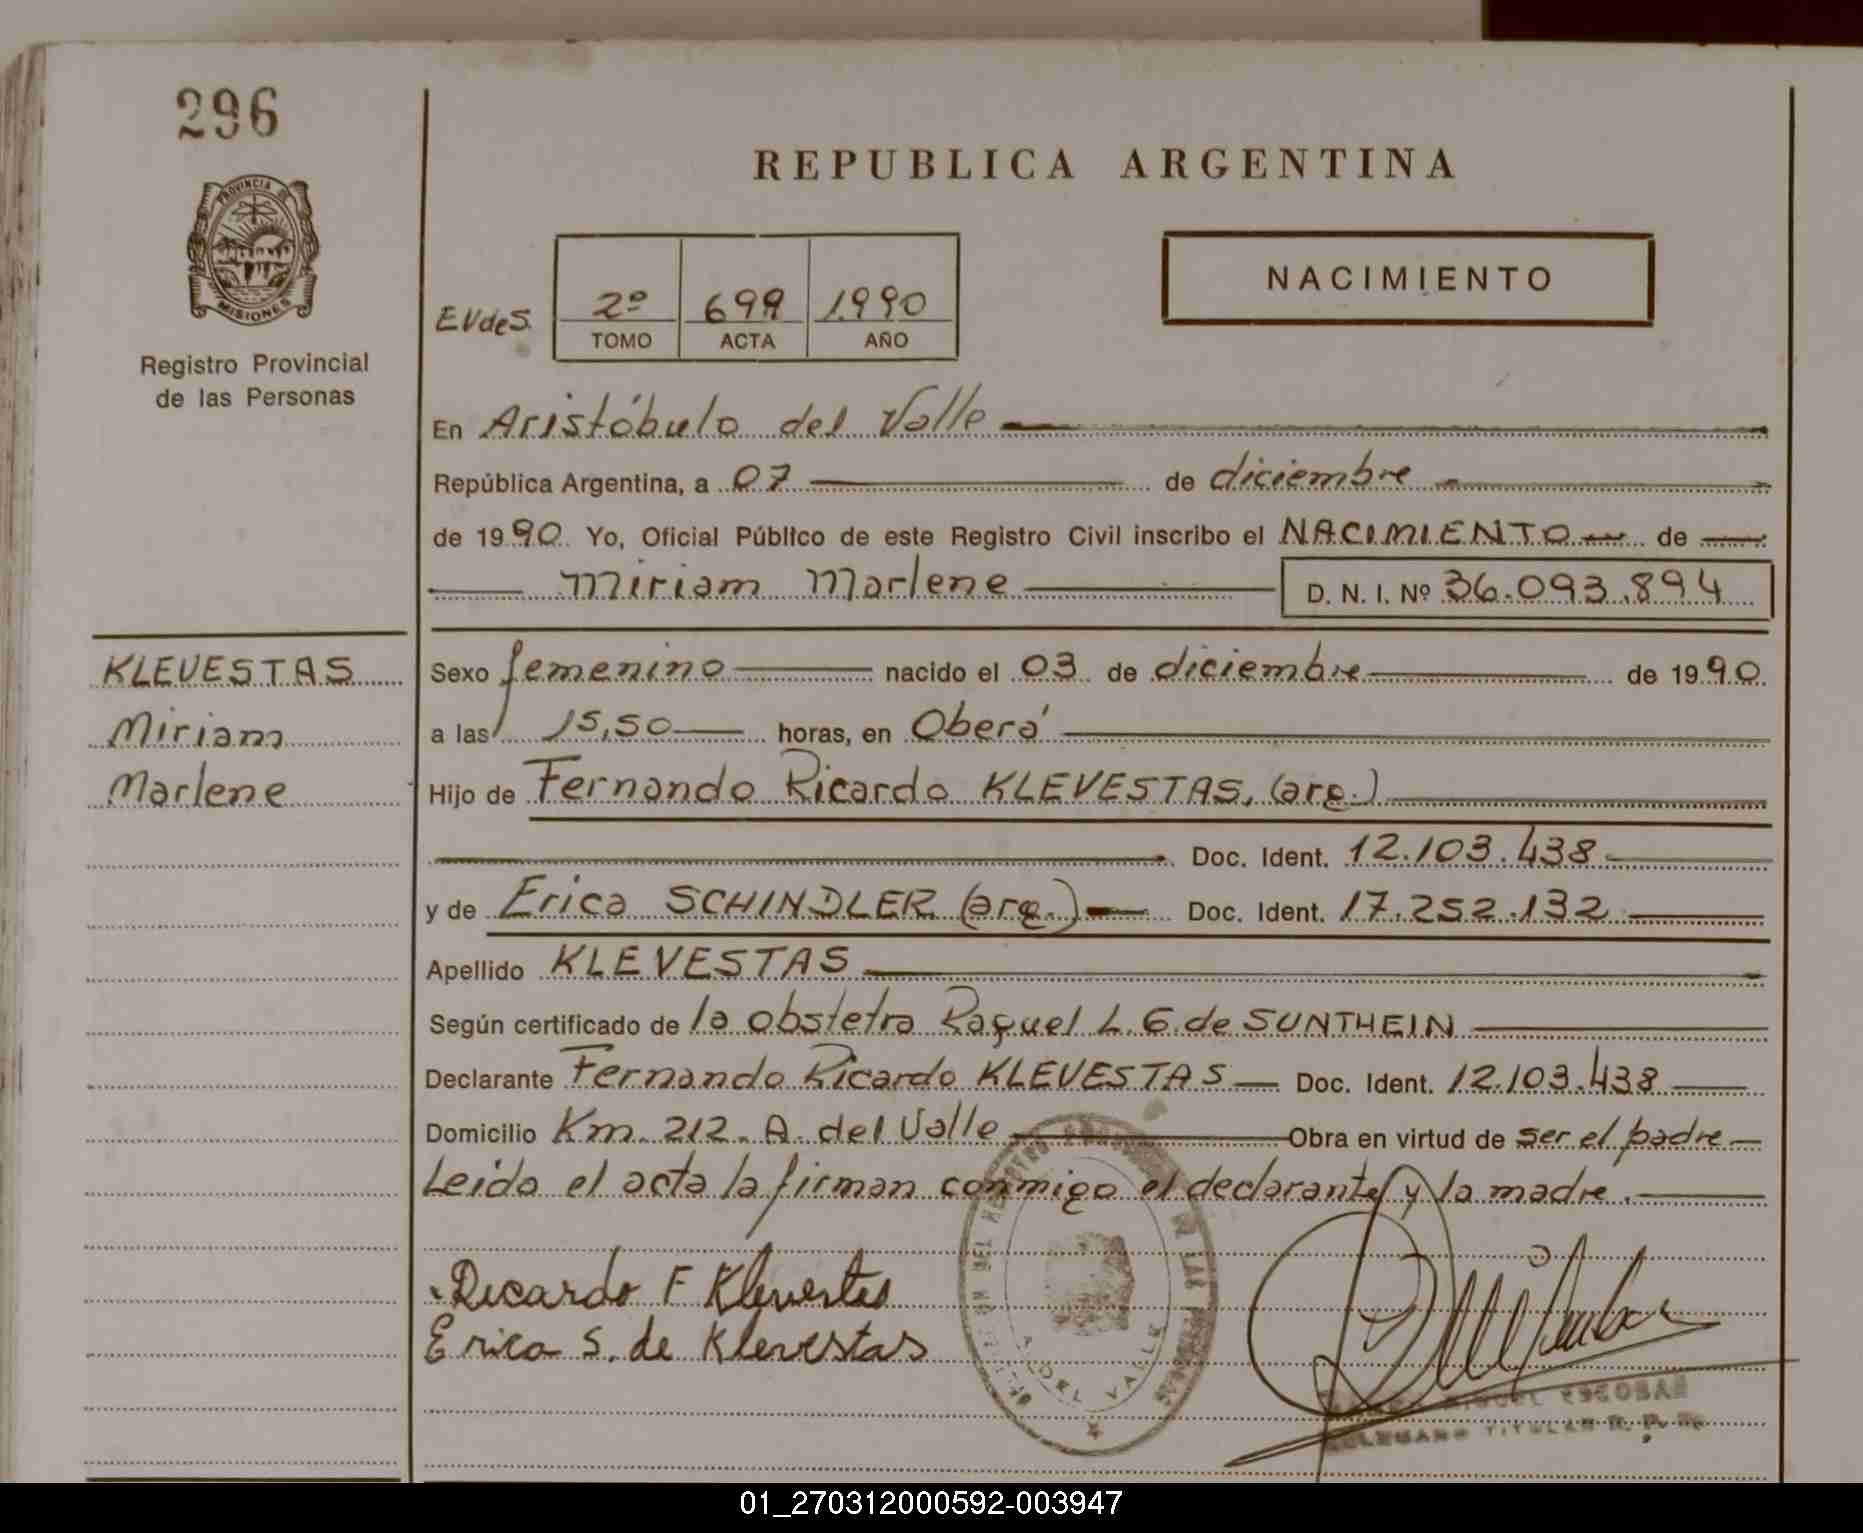 296
REPUBLICA ARGENTINA
PROVINCIA DE
MISIONES
Registro Provincial
de las Personas
NACIMIENTO
EVdeS.
2º 699 1990
TOMO ACTA AÑO
En Aristóbulo del Valle
República Argentina, a 07 de diciembre
de 1990. Yo, Oficial Público de este Registro Civil inscribo el NACIMIENTO de
Miriam Marlene D. N. I. Nº 36.093.894
KLEVESTAS
Miriam
Marlene
Sexo femenino nacido el 03 de diciembre de 1990.
a las 15,50 horas, en Oberá
Hijo de Fernando Ricardo KLEVESTAS, (arg.)
Doc. Ident. 12.103.438
y de Erica SCHINDLER (arg.) Doc. Ident. 17.252.132
Apellido KLEVESTAS
Según certificado de la obstetra Raquel L. G. de SUNTHEIN
Declarante Fernando Ricardo KLEVESTAS Doc. Ident. 12.103.438
Domicilio Km. 212. A. del Valle Obra en virtud de ser el padre
Leida el acta la firman conmigo el declarante y la madre.
Ricardo F Klevestas
Erica S. de Klevestas
A. DEL VALLE
MIGUEL ESCOBAR
TITULAR R. P. P.
01_270312000592-003947